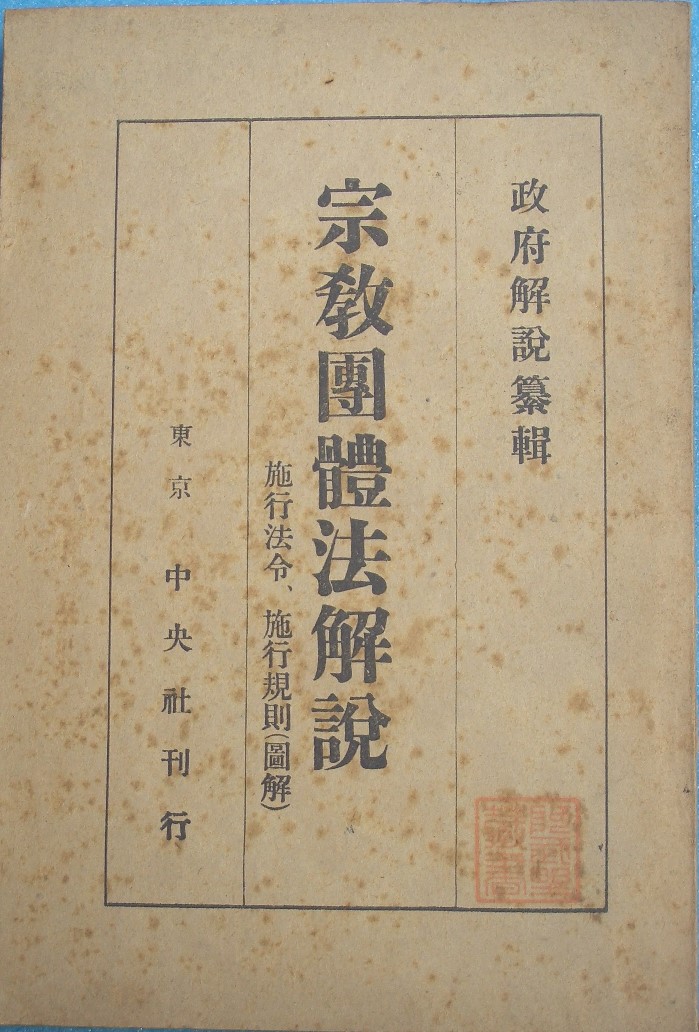 政府解說纂輯
宗敎團體法解說
施行法令、施行規則(圖解)
東京 中央社刊行